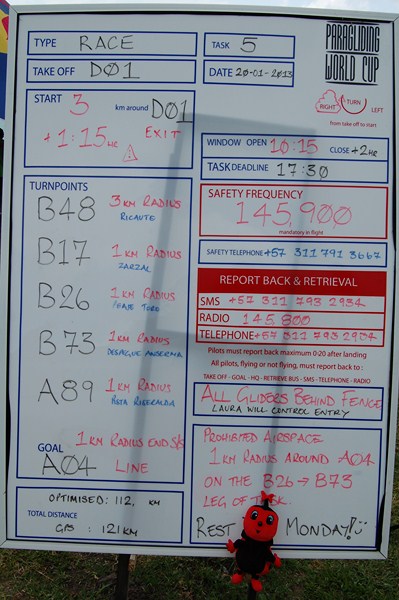 TYPE RACE
TASK 5
PARAGLIDING
WORLD CUP
TAKE OFF D01
DATE 20-01-2013
START 3 km around D01
EXIT
+1:15 HR
RIGHT TURN LEFT
from take off to start
WINDOW OPEN 10:15 CLOSE +2HR
TASK DEADLINE 17:30
TURNPOINTS
B48 3KM RADIUS
RICAUTE
B17 1KM RADIUS
ZARZAL
B26 1KM RADIUS
PEAJE TORO
B73 1KM RADIUS
DESAGUE ANSERMA
A89 1KM RADIUS
PISTA RISERALDA
1KM RADIUS END S/S
GOAL
A04 LINE
OPTIMISED: 112, KM
TOTAL DISTANCE
GPS: 121KM
SAFETY FREQUENCY
145,900
mandatory in flight
SAFETY TELEPHONE +57 311 791 3667
REPORT BACK & RETRIEVAL
SMS +57 311 793 2934
RADIO 145,800
TELEPHONE +57 311 793 2934
Pilots must report back maximum 0:20 after landing
All pilots, flying or not flying, must report back to:
TAKE OFF - GOAL - HQ - RETRIEVE BUS - SMS - TELEPHONE - RADIO
ALL GLIDERS BEHIND FENCE
LAURA WILL CONTROL ENTRY
PROHIBITED AIRSPACE
1KM RADIUS AROUND A04
ON THE B26 → B73
LEG OF TASK.
REST MONDAY!